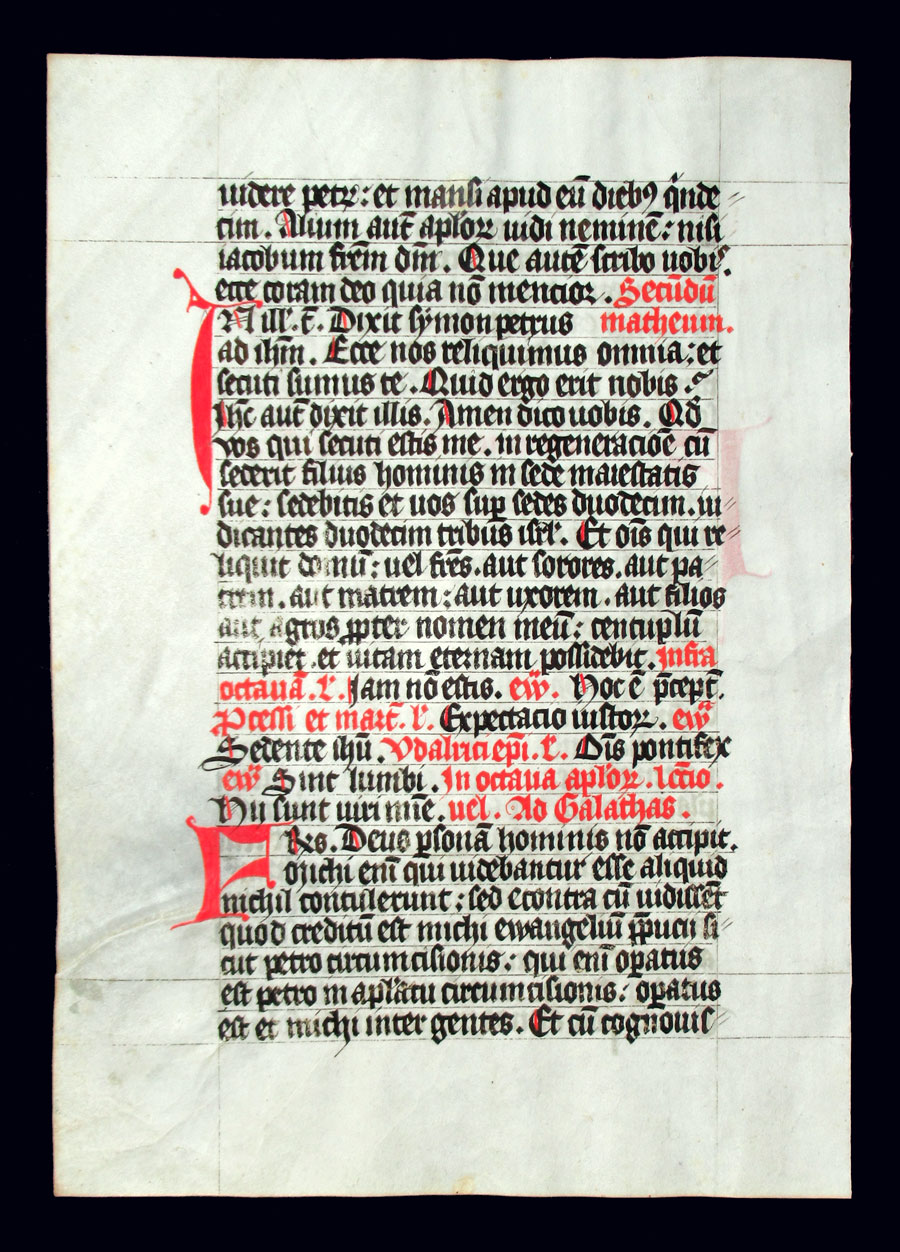 uidere petrū : et mansi apud eū dieb9 q̇nde
cim . Alium aut̄ aploꝝ uidi neminē : nisi
iacobum frēm dm̄ . Que autē scribo uobis .
ecce coram deo quia nō mencior . Secūdū
IN ill' . t̄ . Dixit symon petrus matheum .
ad ihm̄ . Ecce nos reliquimus omnia ; et
secuti sumus te . Quid ergo erit nobis .
Ihc̄ aut̄ dixit illis . Amen dico uobis . Qd̄
vos qui secuti estis me . in regeneracioē cū
sederit filius hominis in sede maiestatis
sue : sedebitis et uos suꝑ sedes duodecim . iu
dicantes duodecim tribus isrl' . Et oīs qui re
liquit domū : uel frēs . aut sorores . aut pa
trem . aut matrem : aut uxorem . aut filios
aut agros ꝓpter nomen meū : centuplū
accipiet . et uitam eternam possidebit . infra
octauā . l' . Iam nō estis . ew̄ . Hoc ē p̄cept̄ .
Pcessi et mart̄ . l' . Expectacio iustoꝝ . ew̄
Sedente ihū . Vdalrici ep̄i . l' . Om̄s pontifex
ew̄ Sint lumbi . In octaua aploꝝ . lcc̄io .
Hii sunt uiri mīe . uel . Ad Galathas .
FRēs . Deus ꝑsonā hominis nō accipit .
Michi enī qui uidebantur esse aliquid
nichil contulerunt : sed econtra cū uidissēt
quod creditū est michi ewangeliū p̄pucii si
cut petro circumcisionis : qui enī oꝑatus
est petro in apl'atu circumcisionis : oꝑatus
est et michi inter gentes . Et cū cognouis